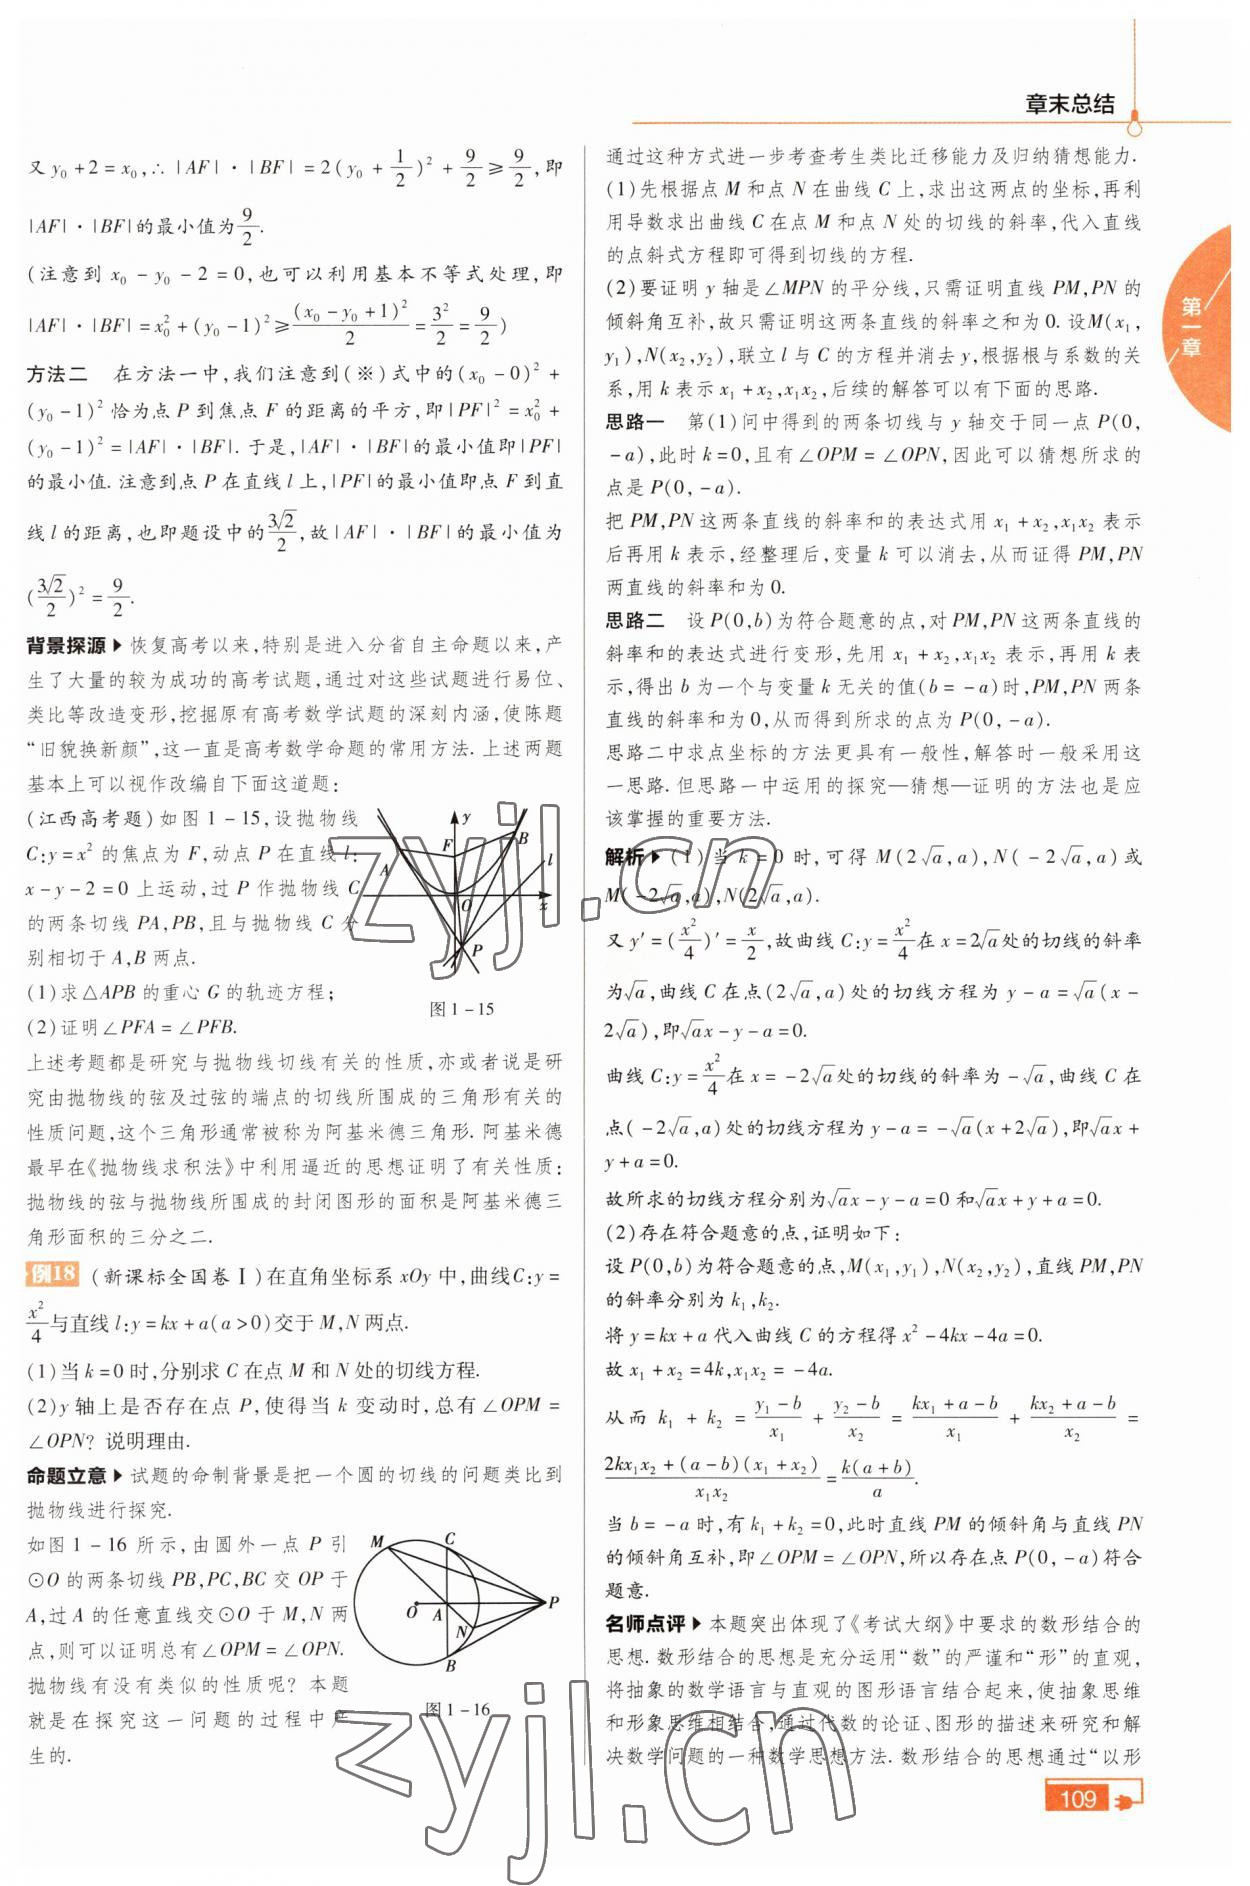 章末总结
又 y₀+2=x₀,∴|AF|·|BF|=2(y₀+1/2)²+9/2≥9/2,即
|AF|·|BF|的最小值为9/2.
(注意到 x₀-y₀-2=0,也可以利用基本不等式处理,即
|AF|·|BF|=x₀²+(y₀-1)²≥(x₀-y₀+1)²/2=3²/2=9/2)
方法二 在方法一中,我们注意到(※)式中的(x₀-0)²+
(y₀-1)²恰为点 P 到焦点 F 的距离的平方,即|PF|²=x₀²+
(y₀-1)²=|AF|·|BF|.于是,|AF|·|BF|的最小值即|PF|
的最小值.注意到点 P 在直线 l 上,|PF|的最小值即点 F 到直
线 l 的距离,也即题设中的3√2/2,故|AF|·|BF|的最小值为
(3√2/2)²=9/2.
背景探源▶恢复高考以来,特别是进入分省自主命题以来,产
生了大量的较为成功的高考试题,通过对这些试题进行易位、
类比等改造变形,挖掘原有高考数学试题的深刻内涵,使陈题
“旧貌换新颜”,这一直是高考数学命题的常用方法.上述两题
基本上可以视作改编自下面这道题:
(江西高考题)如图1-15,设抛物线
C:y=x²的焦点为 F,动点 P 在直线 l:
x-y-2=0 上运动,过 P 作抛物线 C
的两条切线 PA,PB,且与抛物线 C 分
别相切于 A,B 两点.
(1)求△APB 的重心 G 的轨迹方程;
(2)证明∠PFA=∠PFB.
y
F
B
A
l
O
x
P
图1-15
上述考题都是研究与抛物线切线有关的性质,亦或者说是研
究由抛物线的弦及过弦的端点的切线所围成的三角形有关的
性质问题,这个三角形通常被称为阿基米德三角形.阿基米德
最早在《抛物线求积法》中利用逼近的思想证明了有关性质:
抛物线的弦与抛物线所围成的封闭图形的面积是阿基米德三
角形面积的三分之二.
例18 (新课标全国卷Ⅰ)在直角坐标系 xOy 中,曲线C:y=
x²/4与直线 l:y=kx+a(a>0)交于 M,N 两点.
(1)当 k=0 时,分别求 C 在点 M 和 N 处的切线方程.
(2)y 轴上是否存在点 P,使得当 k 变动时,总有∠OPM=
∠OPN?说明理由.
命题立意▶试题的命制背景是把一个圆的切线的问题类比到
抛物线进行探究.
如图1-16 所示,由圆外一点 P 引
⊙O 的两条切线 PB,PC,BC 交 OP 于
A,过 A 的任意直线交⊙O 于 M,N 两
点,则可以证明总有∠OPM=∠OPN.
抛物线有没有类似的性质呢?本题
就是在探究这一问题的过程中产
生的.
M
C
O
A
P
N
B
图1-16
通过这种方式进一步考查考生类比迁移能力及归纳猜想能力.
(1)先根据点 M 和点 N 在曲线 C 上,求出这两点的坐标,再利
用导数求出曲线 C 在点 M 和点 N 处的切线的斜率,代入直线
的点斜式方程即可得到切线的方程.
(2)要证明 y 轴是∠MPN 的平分线,只需证明直线 PM,PN 的
倾斜角互补,故只需证明这两条直线的斜率之和为0.设M(x₁,
y₁),N(x₂,y₂),联立 l 与 C 的方程并消去 y,根据根与系数的关
系,用 k 表示 x₁+x₂,x₁x₂,后续的解答可以有下面的思路.
思路一 第(1)问中得到的两条切线与 y 轴交于同一点 P(0,
-a),此时 k=0,且有∠OPM=∠OPN,因此可以猜想所求的
点是 P(0,-a).
把 PM,PN 这两条直线的斜率和的表达式用 x₁+x₂,x₁x₂ 表示
后再用 k 表示,经整理后,变量 k 可以消去,从而证得 PM,PN
两直线的斜率和为0.
思路二 设 P(0,b)为符合题意的点,对 PM,PN 这两条直线的
斜率和的表达式进行变形,先用 x₁+x₂,x₁x₂ 表示,再用 k 表
示,得出 b 为一个与变量 k 无关的值(b=-a)时,PM,PN 两条
直线的斜率和为0,从而得到所求的点为 P(0,-a).
思路二中求点坐标的方法更具有一般性,解答时一般采用这
一思路.但思路一中运用的探究—猜想—证明的方法也是应
该掌握的重要方法.
解析▶(1)当 k=0 时,可得 M(2√a,a),N(-2√a,a)或
M(-2√a,a),N(2√a,a).
又 y′=(x²/4)′=x/2,故曲线 C:y=x²/4在 x=2√a处的切线的斜率
为√a,曲线 C 在点(2√a,a)处的切线方程为 y-a=√a(x-
2√a),即√ax-y-a=0.
曲线 C:y=x²/4在 x=-2√a处的切线的斜率为-√a,曲线 C 在
点(-2√a,a)处的切线方程为 y-a=-√a(x+2√a),即√ax+
y+a=0.
故所求的切线方程分别为√ax-y-a=0 和√ax+y+a=0.
(2)存在符合题意的点,证明如下:
设 P(0,b)为符合题意的点,M(x₁,y₁),N(x₂,y₂),直线 PM,PN
的斜率分别为 k₁,k₂.
将 y=kx+a 代入曲线 C 的方程得 x²-4kx-4a=0.
故 x₁+x₂=4k,x₁x₂=-4a.
从而 k₁+k₂=(y₁-b)/x₁+(y₂-b)/x₂=(kx₁+a-b)/x₁+(kx₂+a-b)/x₂=
(2kx₁x₂+(a-b)(x₁+x₂))/(x₁x₂)=k(a+b)/a.
当 b=-a 时,有 k₁+k₂=0,此时直线 PM 的倾斜角与直线 PN
的倾斜角互补,即∠OPM=∠OPN,所以存在点 P(0,-a)符合
题意.
名师点评▶本题突出体现了《考试大纲》中要求的数形结合的
思想.数形结合的思想是充分运用“数”的严谨和“形”的直观,
将抽象的数学语言与直观的图形语言结合起来,使抽象思维
和形象思维相结合,通过代数的论证、图形的描述来研究和解
决数学问题的一种数学思想方法.数形结合的思想通过“以形
第一章
109
zyjl.cn
zyjl.cn